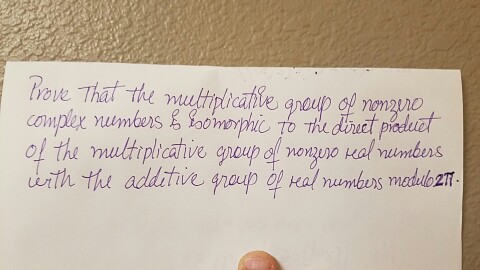 Prove That the multiplicative group of nonzero
complex numbers is isomorphic to the direct product
of the multiplicative group of nonzero real numbers
with the additive group of real numbers modulo 2π.